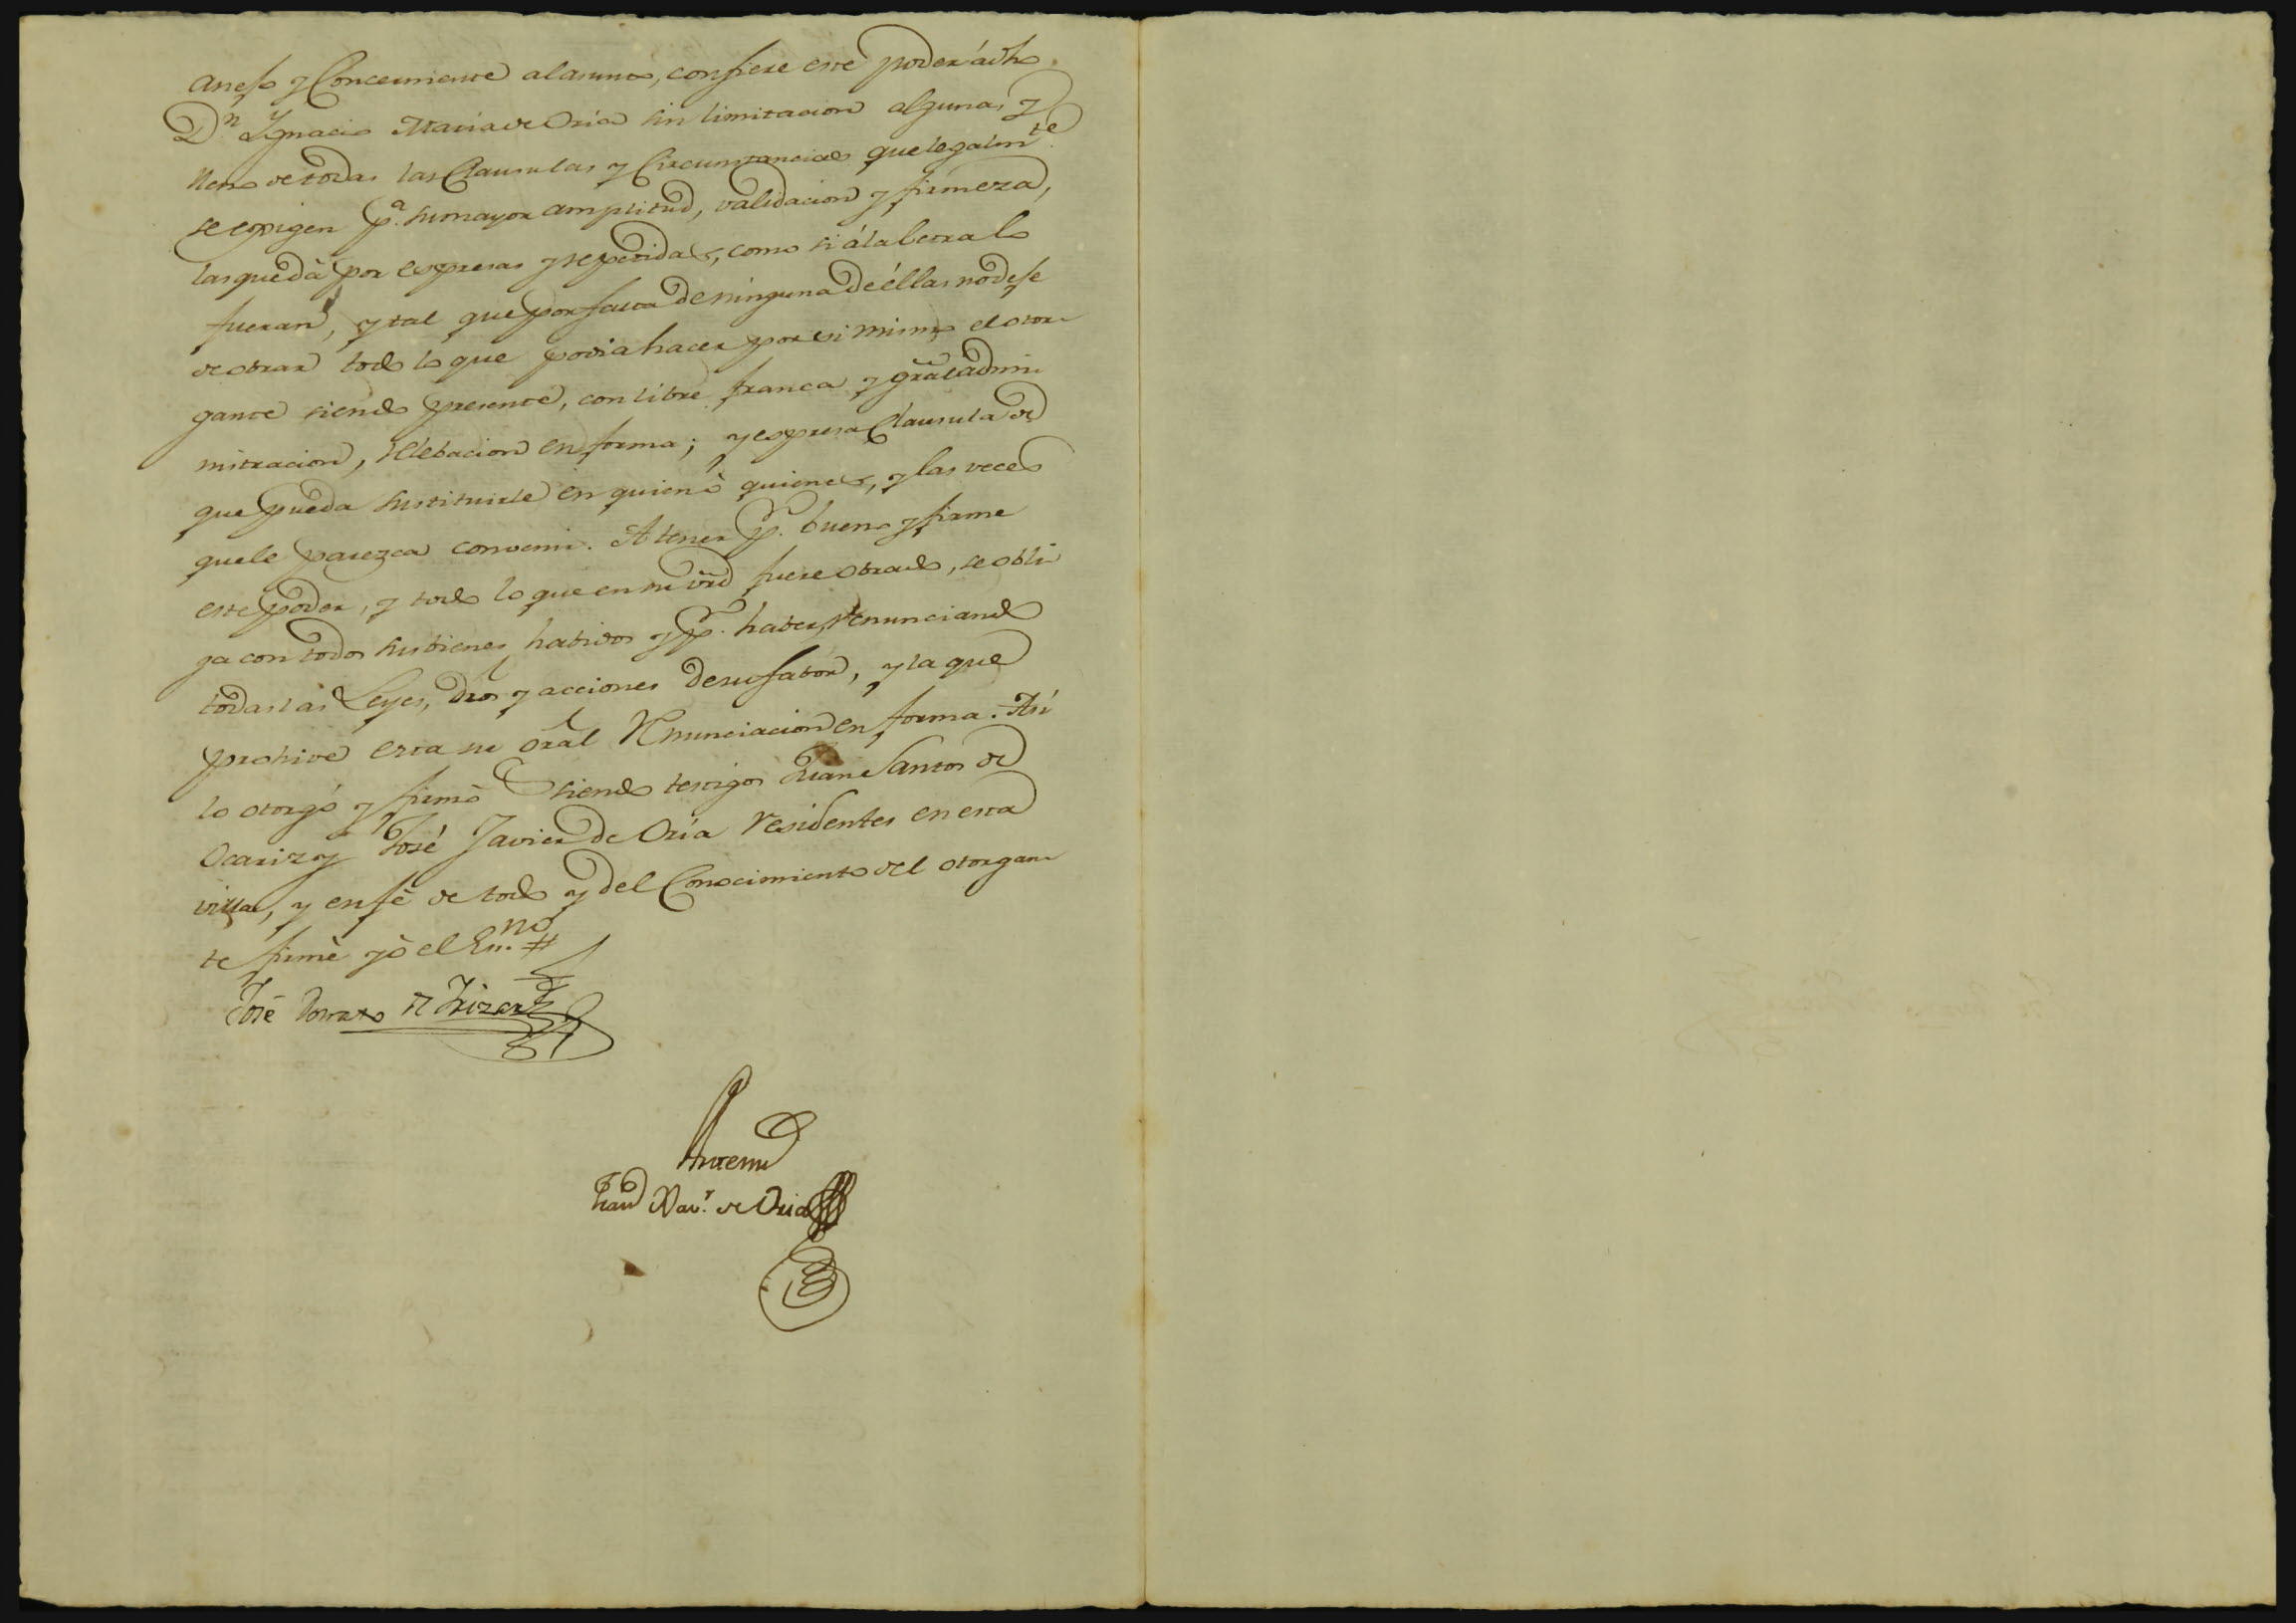 anejo y Concerniente alasunto, confiere este poder ádho
Dn Ygnacio Maria de Oria sin limitacion alguna, y
lleno detodas las Clausulas y Circunstancias que legalmte
se exigen pa. sumayor amplitud, validacion y firmeza,
lasquedà por expresas y repetidas, como si álaletralo
fueran, ytal que porfalta deninguna de éllas nodeje
deobrar todo loque podia hacer por si mismo elotor-
gante siendo presente, con libre franca y gral admi-
nistracion, relebacion en forma; y expresa Clausula de
que pueda sustituirle en quien ò quienes, y las veces
quele parezca convenir. A tener pr. bueno y firme
este poder, y todo lo que en su vrd fuere obrado, se obli-
ga con todos sus bienes habidos y pr. haber, renunciando
todas las Leyes, dros y acciones desufabor, y la que
prohive esta su gral Renunciacion en forma. Asi
lo otorgó y firmò siendo testigos Juan Santos de
Ocariz y José Javier de Oria residentes en esta
villa, y en fè de todo y del Conocimiento del otorgan-
te firmè yò el Esno. #
José Donato de Irizar
Antemi
Juan Xavr. de Oria